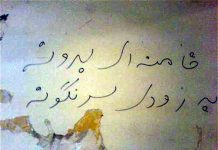 خامنه ای بدونه
به زودی سرنگونه